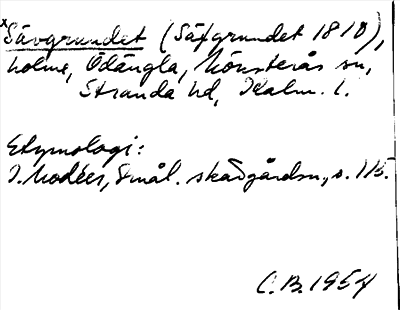 ×Sävgrundet (Säfgrundet 1810),
holme, Ödängla, Mönsterås sn,
Stranda hd, Kalm. l.
Etymologi:
I. Modéer, Smål. skärgårdsn., s. 115.
C.B. 1954